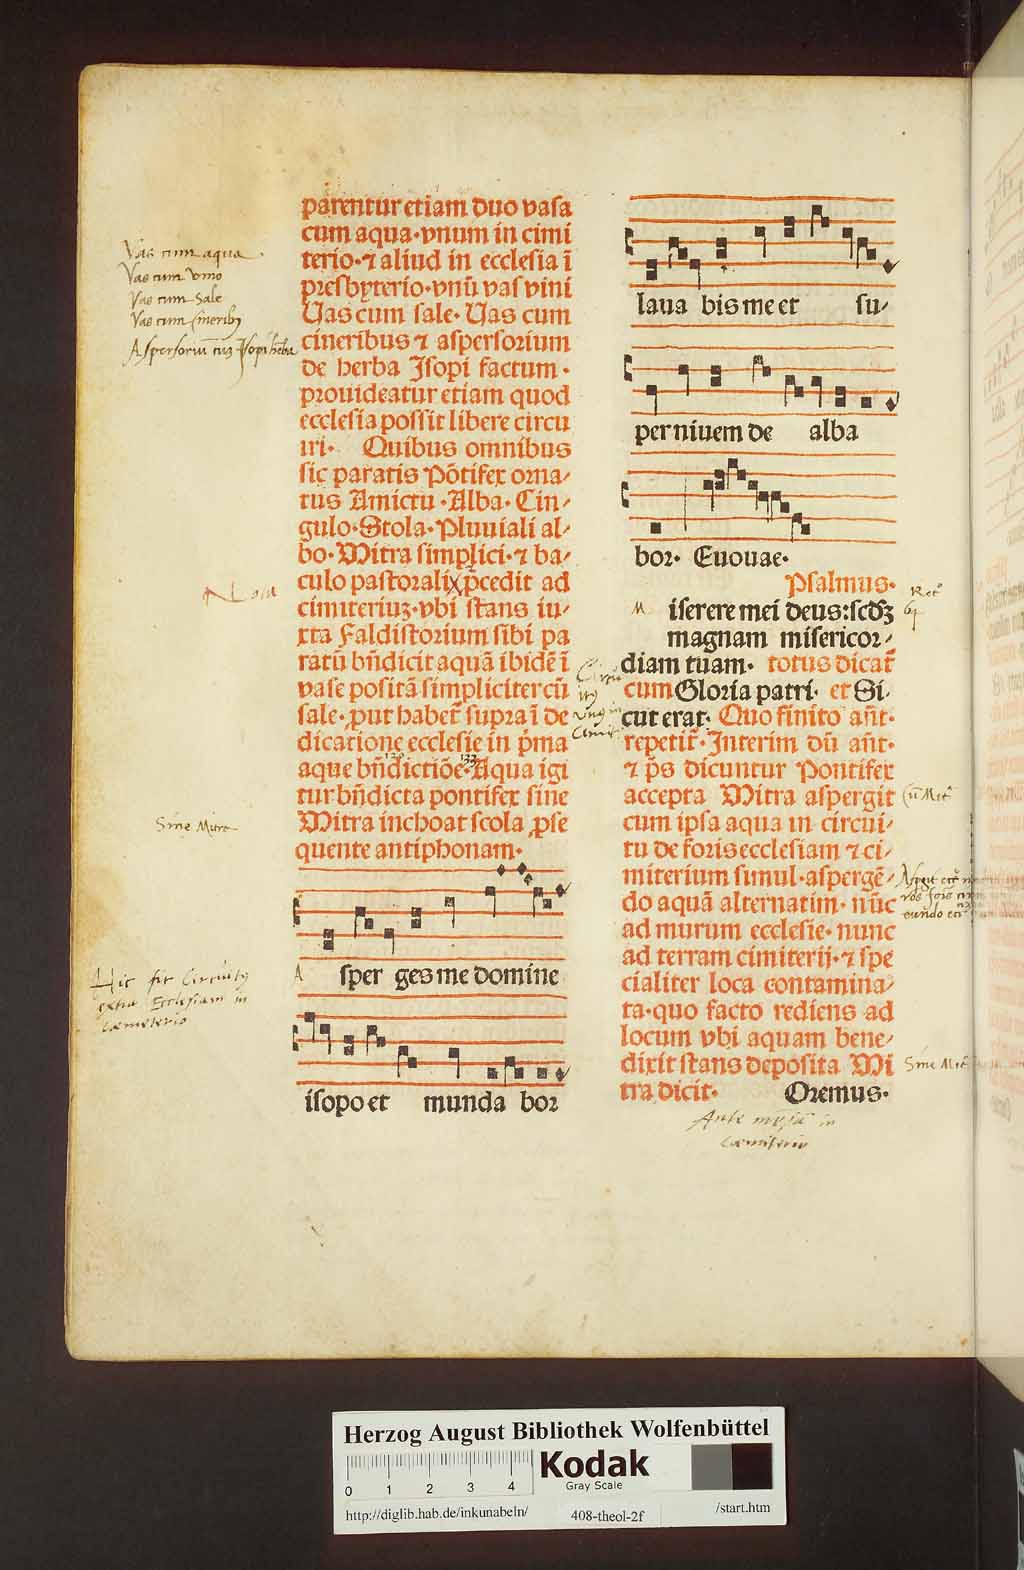 parentur etiam duo vasa
cum aqua·vnum in cimi
terio·⁊ aliud in ecclesia ī
presbyterio·vnū vas vini
Uas cum sale· Uas cum
cineribus ⁊ aspersorium
de herba Jsopi factum·
prouideatur etiam quod
ecclesia possit libere circu
iri· Quibus omnibus
sic paratis Põtifex orna⸗
tus Amictu·Alba·Cin⸗
gulo·Stola·Pluuiali al⸗
bo·Mitra simplici·⁊ ba⸗
culo pastorali p̄cedit ad
cimiteriuʒ·vbi stans iu⸗
xta Faldistorium sibi pa
ratū bn̄dicit aquā ibidē ī
vase positā simpliciter cū
sale·ꝓut habet̄ supra ī de
dicatione ecclesie in p̄ma
aque bn̄dictiōe·Aqua igi
tur bn̄dicta pontifex sine
Mitra inchoat scola ꝓse
quente antiphonam·
A sper ges me domine
isopo et munda bor
Vas cum aqua
Vas cum vino
Vas cum Sale
Sine Mitra
Hic fit Circuitus
extra Ecclesiam in
Cæmeterio
laua bis me et su⸗
per niuem de alba
bor· Euouae·
Psalmus·
M iserere mei deus:scd̄ʒ
magnam misericor⸗
diam tuam· totus dicat̄
cum Gloria patri· et Si⸗
cut erat· Quo finito an̄t·
repetit̄·Interim dū an̄t·
⁊ p̄s dicuntur Pontifex
accepta Mitra aspergit
cum ipsa aqua in circui⸗
tu de foris ecclesiam ⁊ ci⸗
miterium simul·aspergē⸗
do aquā alternatim· nūc
ad murum ecclesie·nunc
ad terram cimiterij·⁊ spe
cialiter loca contamina⸗
ta·quo facto rediens ad
locum vbi aquam bene⸗
dixit stans deposita Mi
tra dicit· Oremus·
Sine Mit
Herzog August Bibliothek Wolfenbüttel
0 1 2 3 4
Kodak
Gray Scale
http://diglib.hab.de/inkunabeln/ 408-theol-2f /start.htm